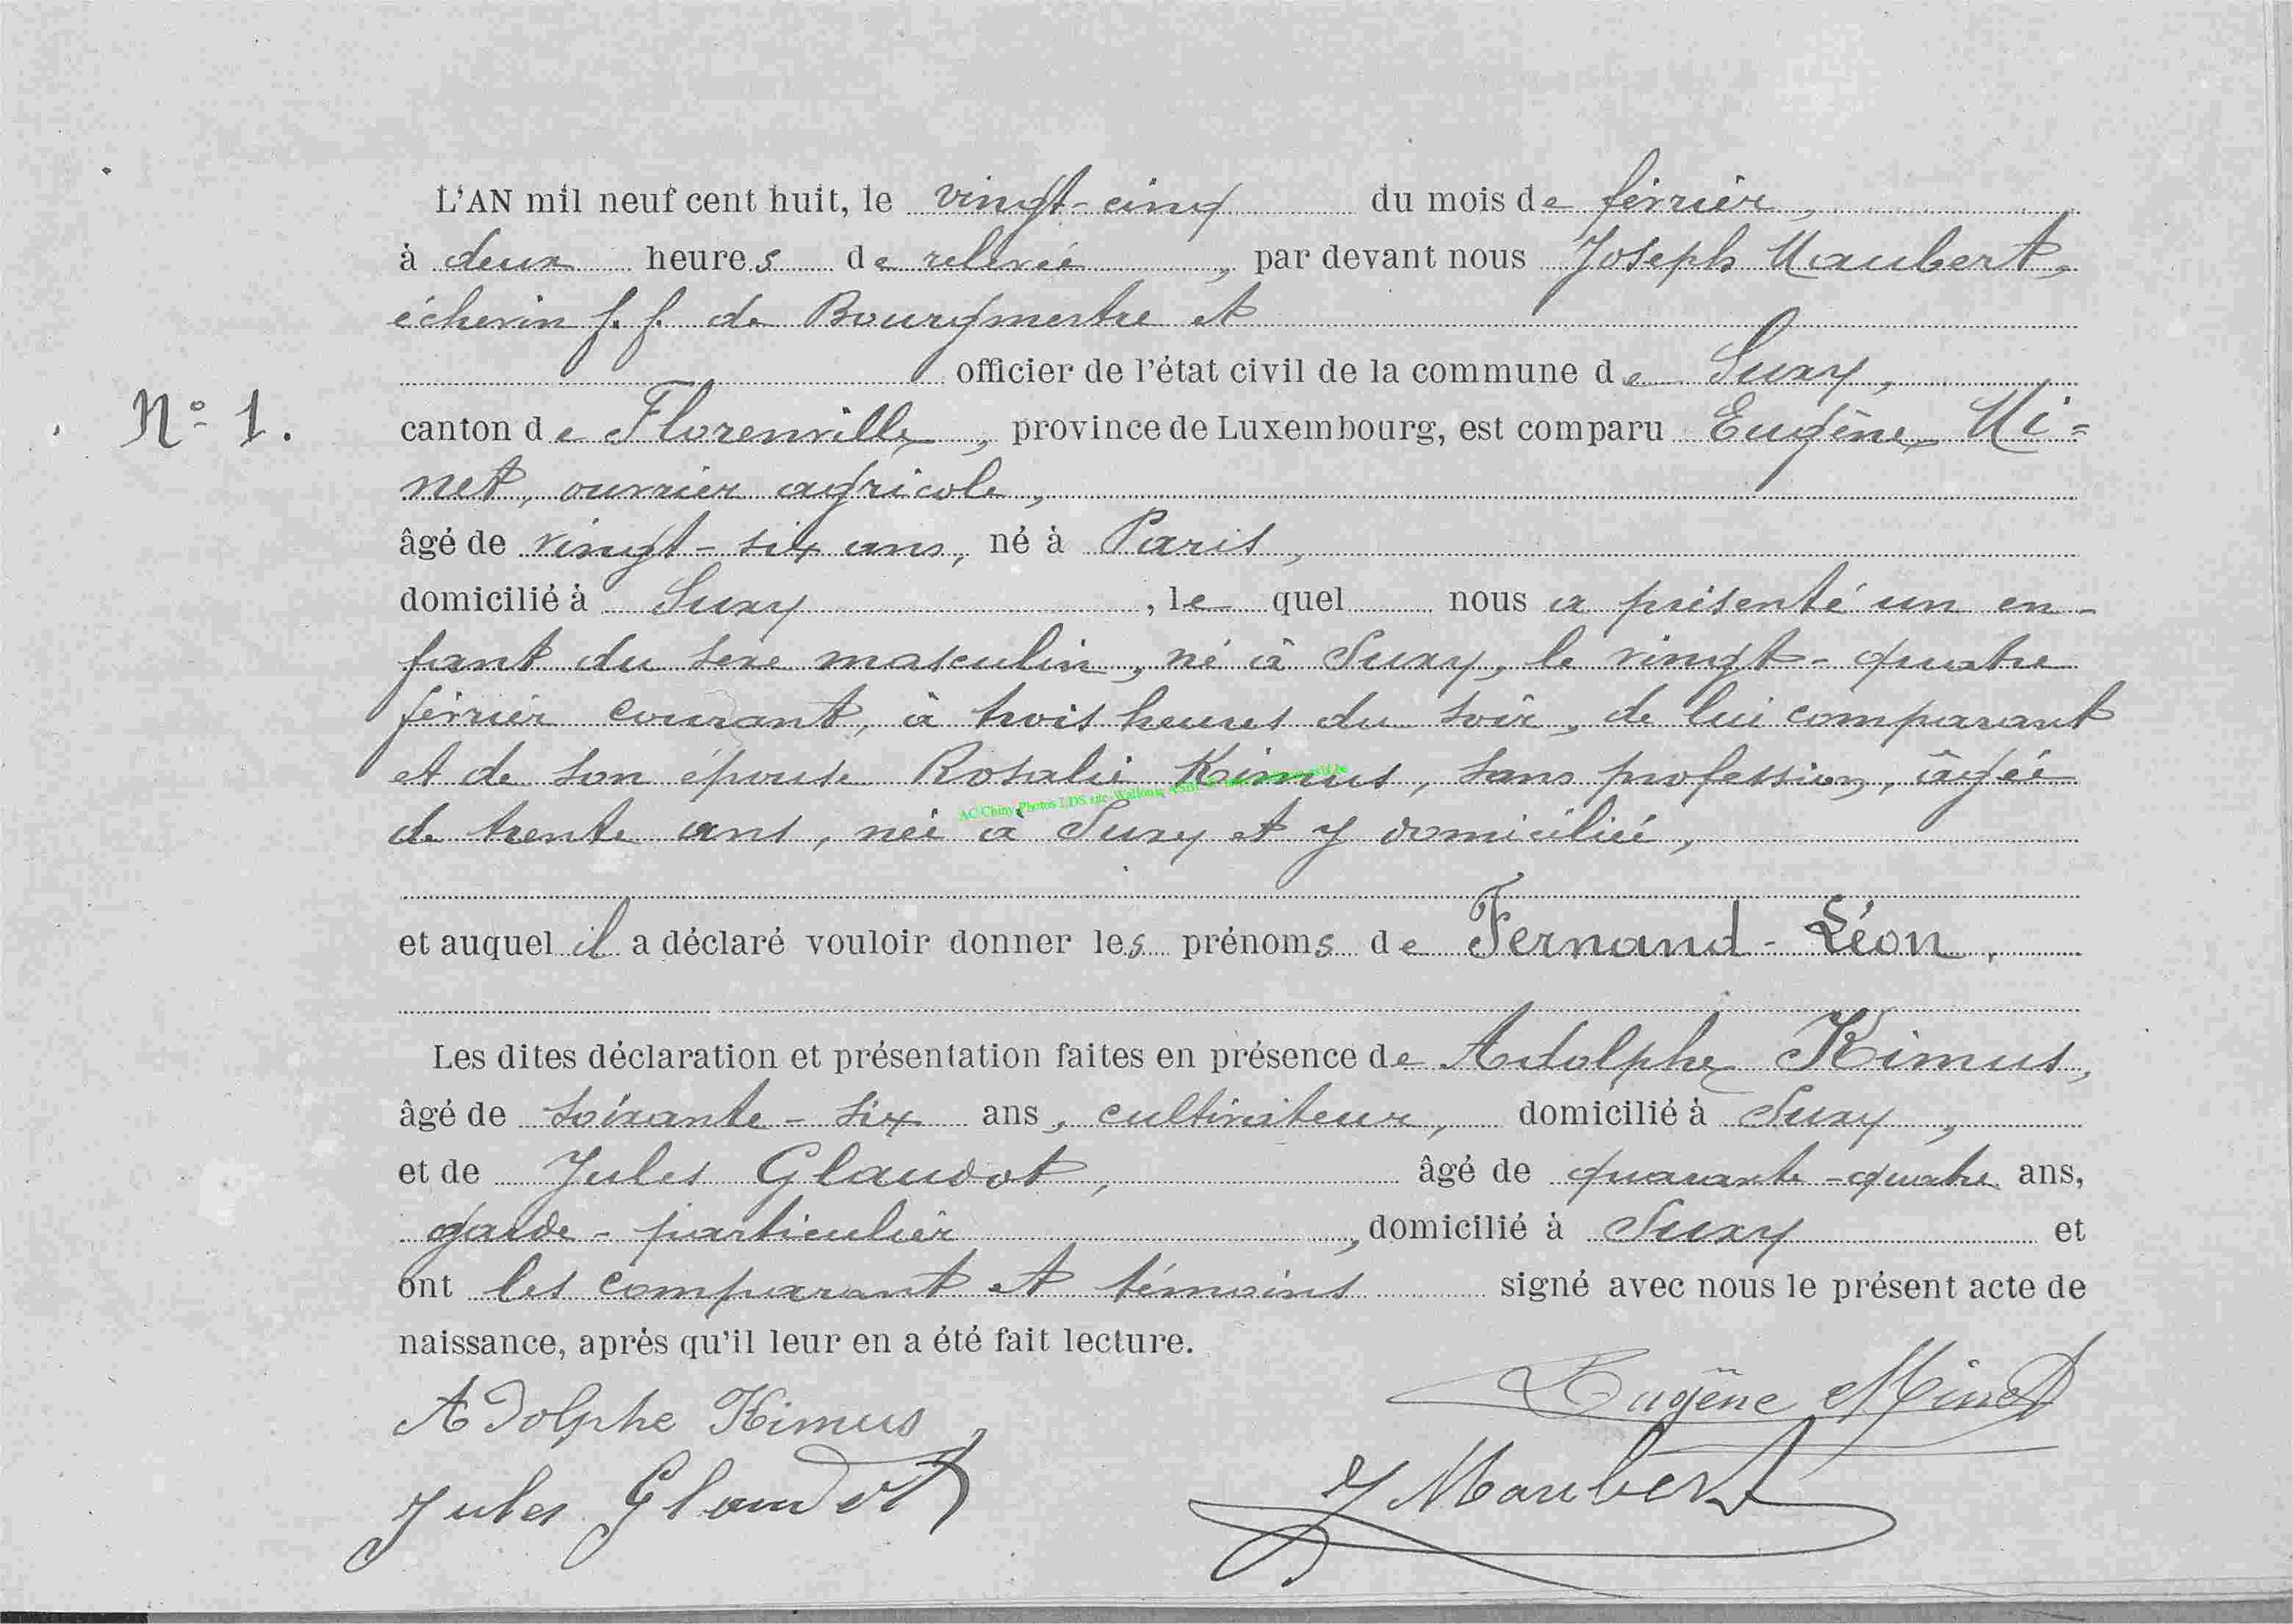 L'AN mil neuf cent huit, le vingt-cinq du mois de février,
à deux heures de relevée, par devant nous Joseph Maubert,
échevin f. f. de Bourgmestre et
officier de l'état civil de la commune de Suxy,
N° 1.
canton de Florenville, province de Luxembourg, est comparu Eugène Mi=
net, ouvrier agricole,
âgé de vingt-six ans, né à Paris,
domicilié à Suxy, lequel nous a présenté un en-
fant du sexe masculin, né à Suxy, le vingt-quatre
février courant, à trois heures du soir, de lui comparant
et de son épouse Rosalie Kimus, sans profession, âgée
AC Chiny Photos LDS site Wallonia ASBL
de trente ans, née à Suxy et y domiciliée,
et auquel il a déclaré vouloir donner les prénoms de Fernand-Léon.
Les dites déclaration et présentation faites en présence de Adolphe Kimus,
âgé de soixante-six ans, cultivateur, domicilié à Suxy,
et de Jules Glaudot, âgé de quarante-quatre ans,
garde-particulier, domicilié à Suxy et
ont les comparant et témoins signé avec nous le présent acte de
naissance, après qu'il leur en a été fait lecture.
Adolphe Kimus Eugène Minet
Jules Glaudot J Maubert